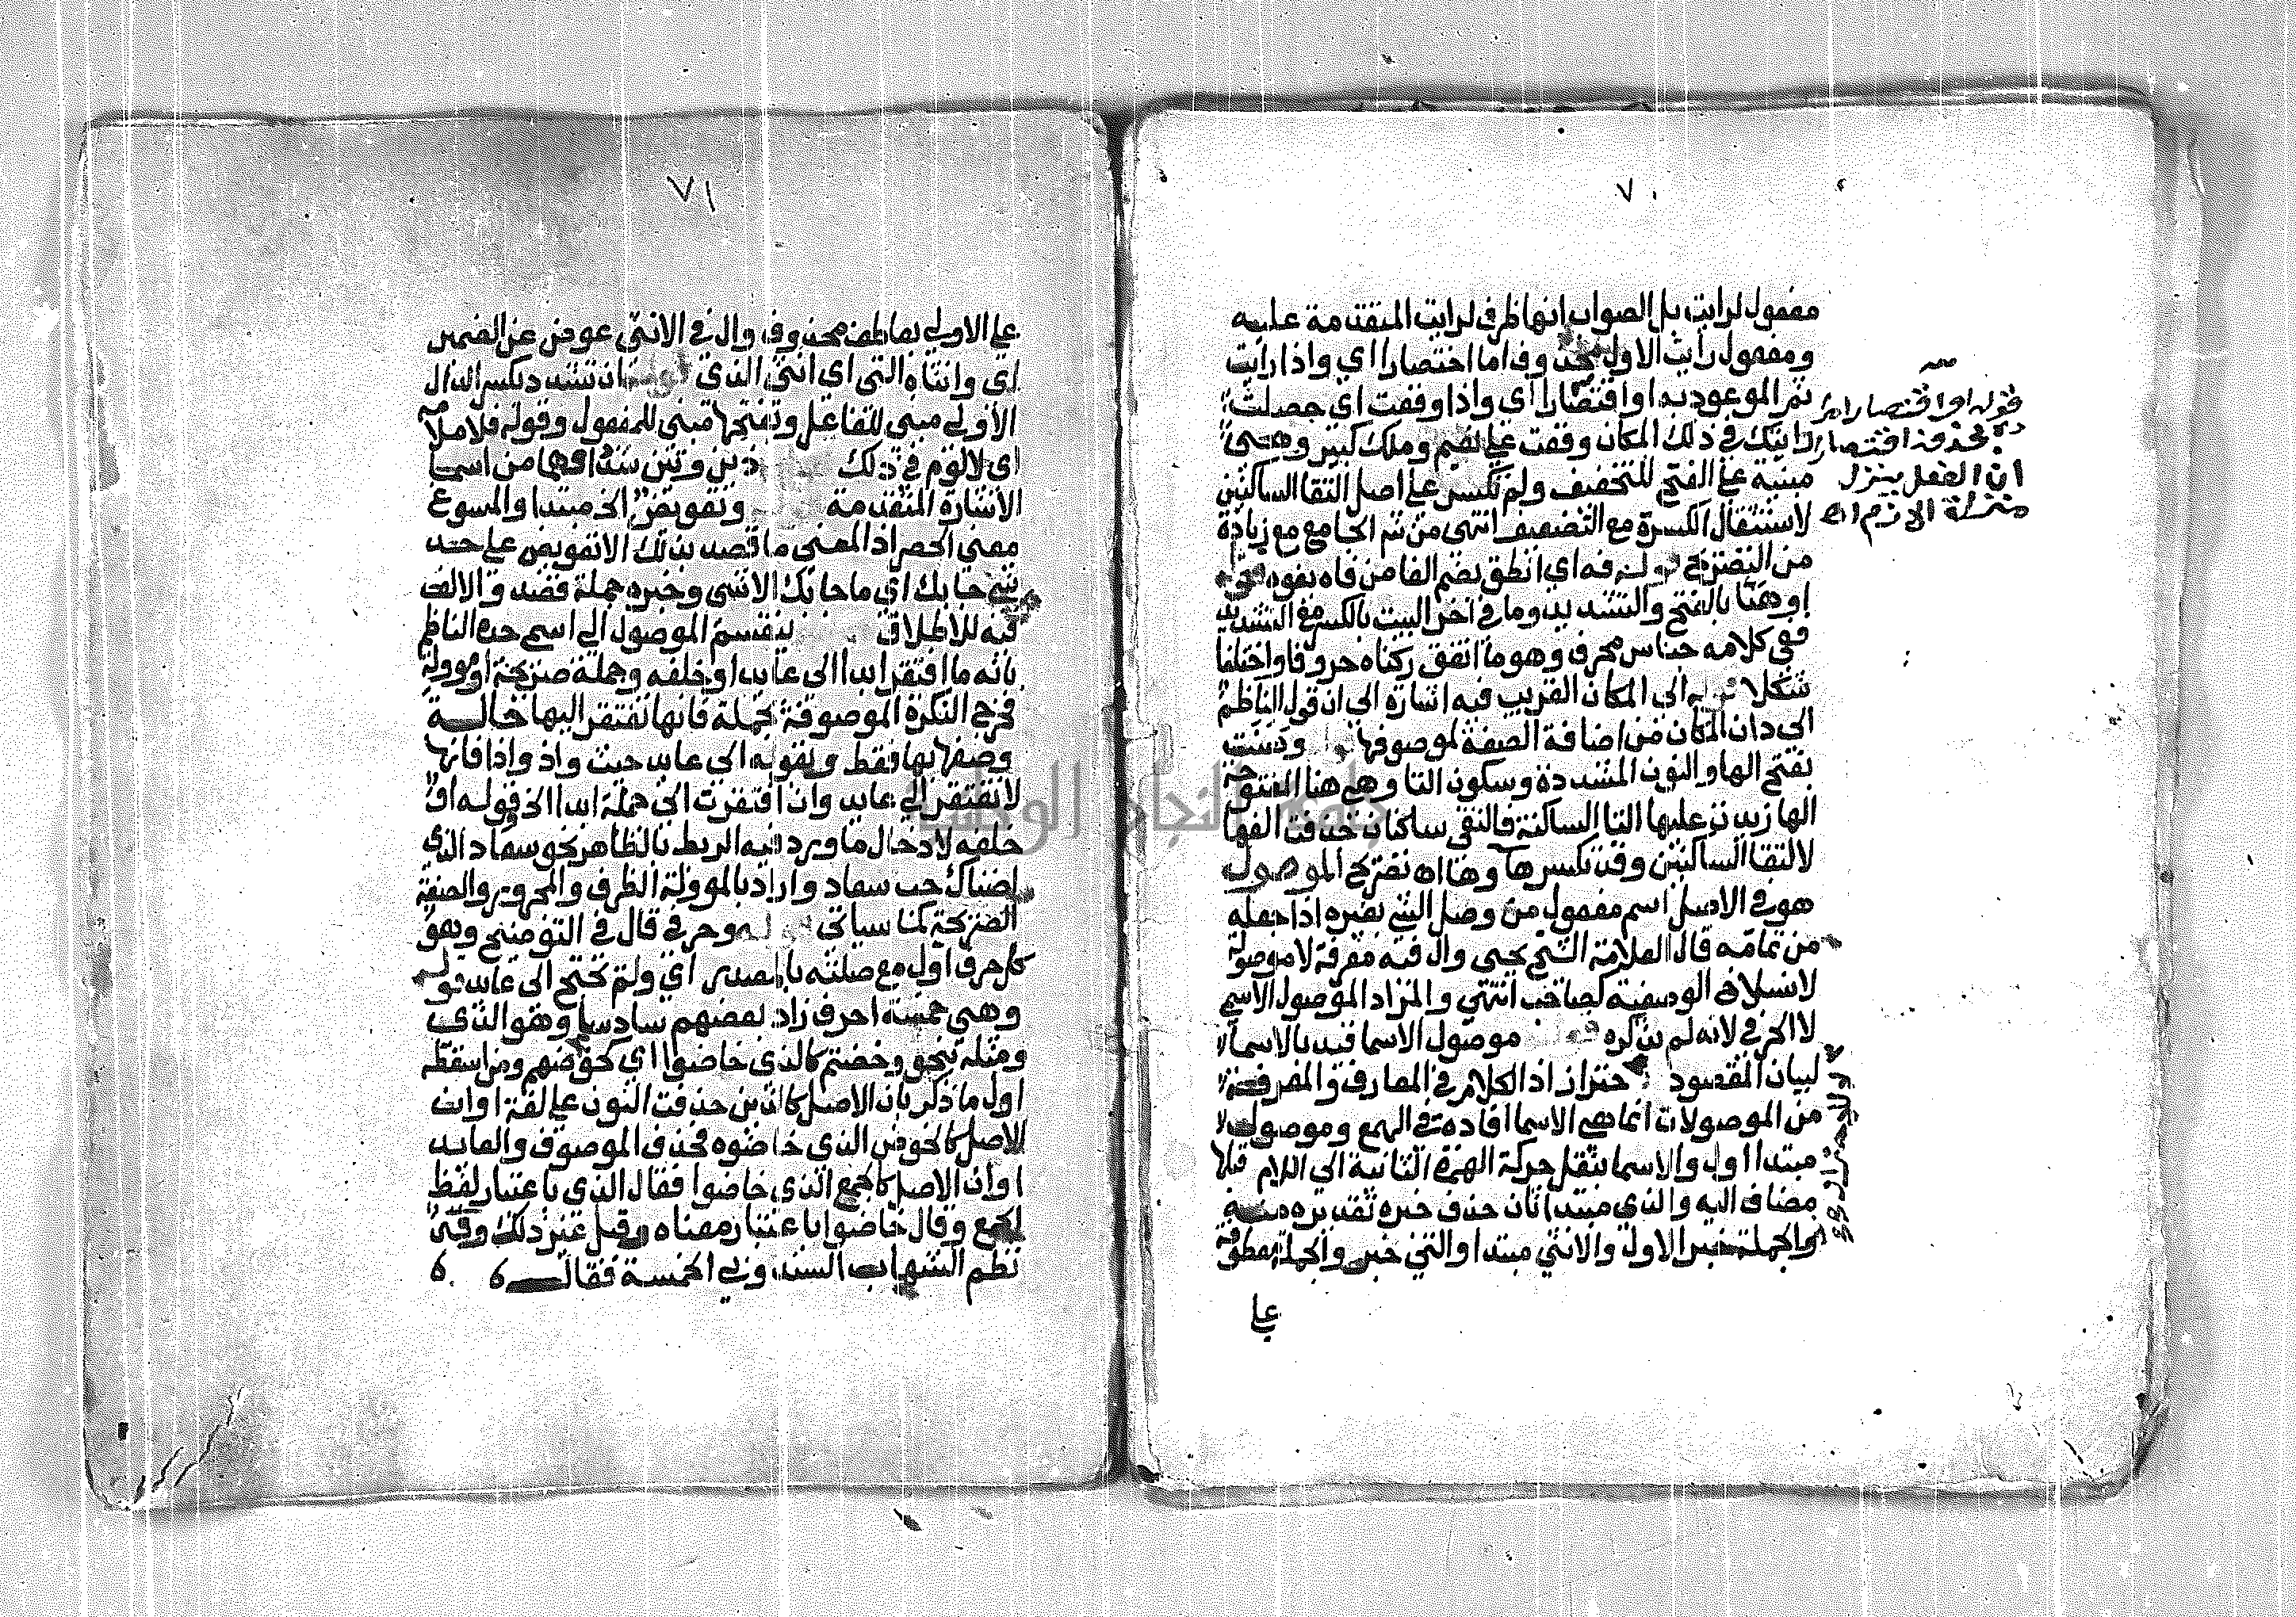 ٧٠
مفعول لرايت بل الصواب انها ظرف لرايت المتقدمة عليه
ومفعول رايت الاول محذوف اما اختصارا اي واذا رايت
ثم الموعود به او اقتصارا اي واذا وقفت اي حصلت
رايتك في ذلك المكان وقفت على نعيم وملك كبير وهي
مبنية على الفتح للتخفيف ولم تكسر على اصل التقا الساكنين
لاستثقال الكسرة مع التضعيف انتهى من شر الجامع مع زيادة
من التصريح فه اي انطق بضم الفا من فاه يفوه
او هنا بالفتح والتشديد وما في اخر البيت بالكسر مع التشديد
ففي كلامه جناس محرف وهو ما اتفق ركناه حروفا واختلفا
شكلا الى المكان القريب فيه اشارة الى ان قول الناظم
الى دان المكان من اضافة الصفة لموصوفها وهنت
بفتح الها والنون المشددة وسكون التا وهي هنا المفتوحة
الها زيدت عليها التا الساكنة فالتقى ساكنان حذفت الفها
لالتقا الساكنين وقد تكسر ها وها اه تصريح الموصول
هو في الاصل اسم مفعول من وصل الشي بغيره اذا جعله
من تمامه قال العلامة الشيخ يحيى وال فيه معرفة لا موصولة
لانسلاخ الوصفية كصاحب انتهى والمراد الموصول الاسمي
لا الحرفي لانه لم يذكره موصول الاسما قيد بالاسما
لبيان المقصود احتراز اذ الكلام في المعارف والمعرفة
من الموصولات انما هي الاسما افاده في الهمع وموصول
مبتدا اول والاسما بنقل حركة الهمزة الثانية الى اللام قبلها
مضاف اليه والذي مبتدا ثان حذف خبره تقديره منه
والجملة خبر الاول والانثى مبتدا والتي خبر والجملة معطوفة
على
قوله او اقتصارا
بحذفه اقتصارا
ان الفعل ينزل
منزلة اللازم اه
٧١
على الاولى بعاطف محذوف وال في الانثى عوض عن الضمير
اي وانثاه التي اي انثى الذي ان تشدد بكسر الدال
الاولى مبني للفاعل وتفتحها مبني للمفعول وقوله فلا ملامة
اي لا لوم في ذلك ذين وتين شدد افهما من اسما
الاشارة المتقدمة وتعويض الخ مبتدا والمسوغ
معنى الحصر اذ المعنى ما قصد بذلك الا تعويض على حد
شي جا بك اي ما جا بك الا شي وخبره جملة قصد والالف
فيه للاطلاق ينقسم الموصول الى اسم حده الناظم
بانه ما افتقر ابدا الى عايد او خلفه وجملة صريحة او موولة
فخرج النكرة الموصوفة بجملة فانها تفتقر اليها حالة
وصفها بها فقط وبقوله الى عايد حيث واذ واذا فانها
لا تفتقر الى عايد وان افتقرت الى جملة ابدا الخ قوله او
خلفه لادخال ما ورد فيه الربط بالظاهر نحو سعاد التي
اضناك حب سعاد واراد بالموولة الظرف والمجرور والصفة
الصريحة كما سياتي وحرفي قال في التوضيح وهو
كل حرف اول مع صلته بالمصدر اي ولم تحتج الى عايد
وهي خمسة احرف زاد بعضهم سادسا وهو الذي
ومثله بنحو وخضتم كالذي خاضوا اي كخوضهم ومن اسقطه
اول ما ذكر بان الاصل كالذين حذفت النون على لغة او ان
الاصل كالخوض الذي خاضوه فحذف الموصوف والعايد
او ان الاصل كالجمع الذي خاضوا فقال الذي باعتبار لفظ
الجمع وقال خاضوا باعتبار معناه وقيل غير ذلك وقد
نظم الشهاب السندوبي الخمسة فقال